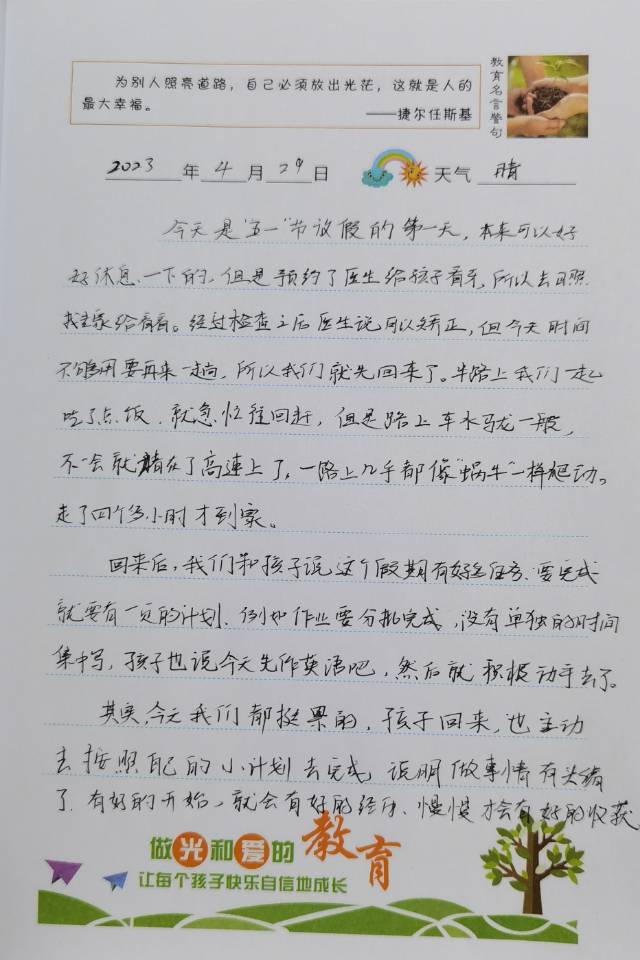 为别人照亮道路，自己必须放出光花，这就是人的
最大幸福。
——捷尔任斯基
教育名言警句
2023年4月29日 天气 晴
今天是"五一"节放假的第一天，本来可以好
好休息一下的，但是预约了医生给孩子看牙，所以去日照
给看看。经过检查之后医生说可以矫正，但今天时间
不够用要再来一趟，所以我们就先回来了。半路上我们一起
吃了点饭，就急忙往回赶，但是路上车水马龙一般，
不一会就堵在了高速上了，一路上几乎都像"蜗牛"一样爬动。
走了四个多小时才到家。
回来后，我们和孩子说这个假期有好多任务，要完成
就要有一定的计划，例如作业要分批完成，没有单独的时间
集中写，孩子也说今天先作英语吧，然后就积极动手去了。
其实，今天我们都挺累的，孩子回来，也主动
去按照自己的小计划去完成，说明做事情有头绪
了，有好的开始，就会有好的经历，慢慢才会有好的收获
做光和爱的教育
让每个孩子快乐自信地成长